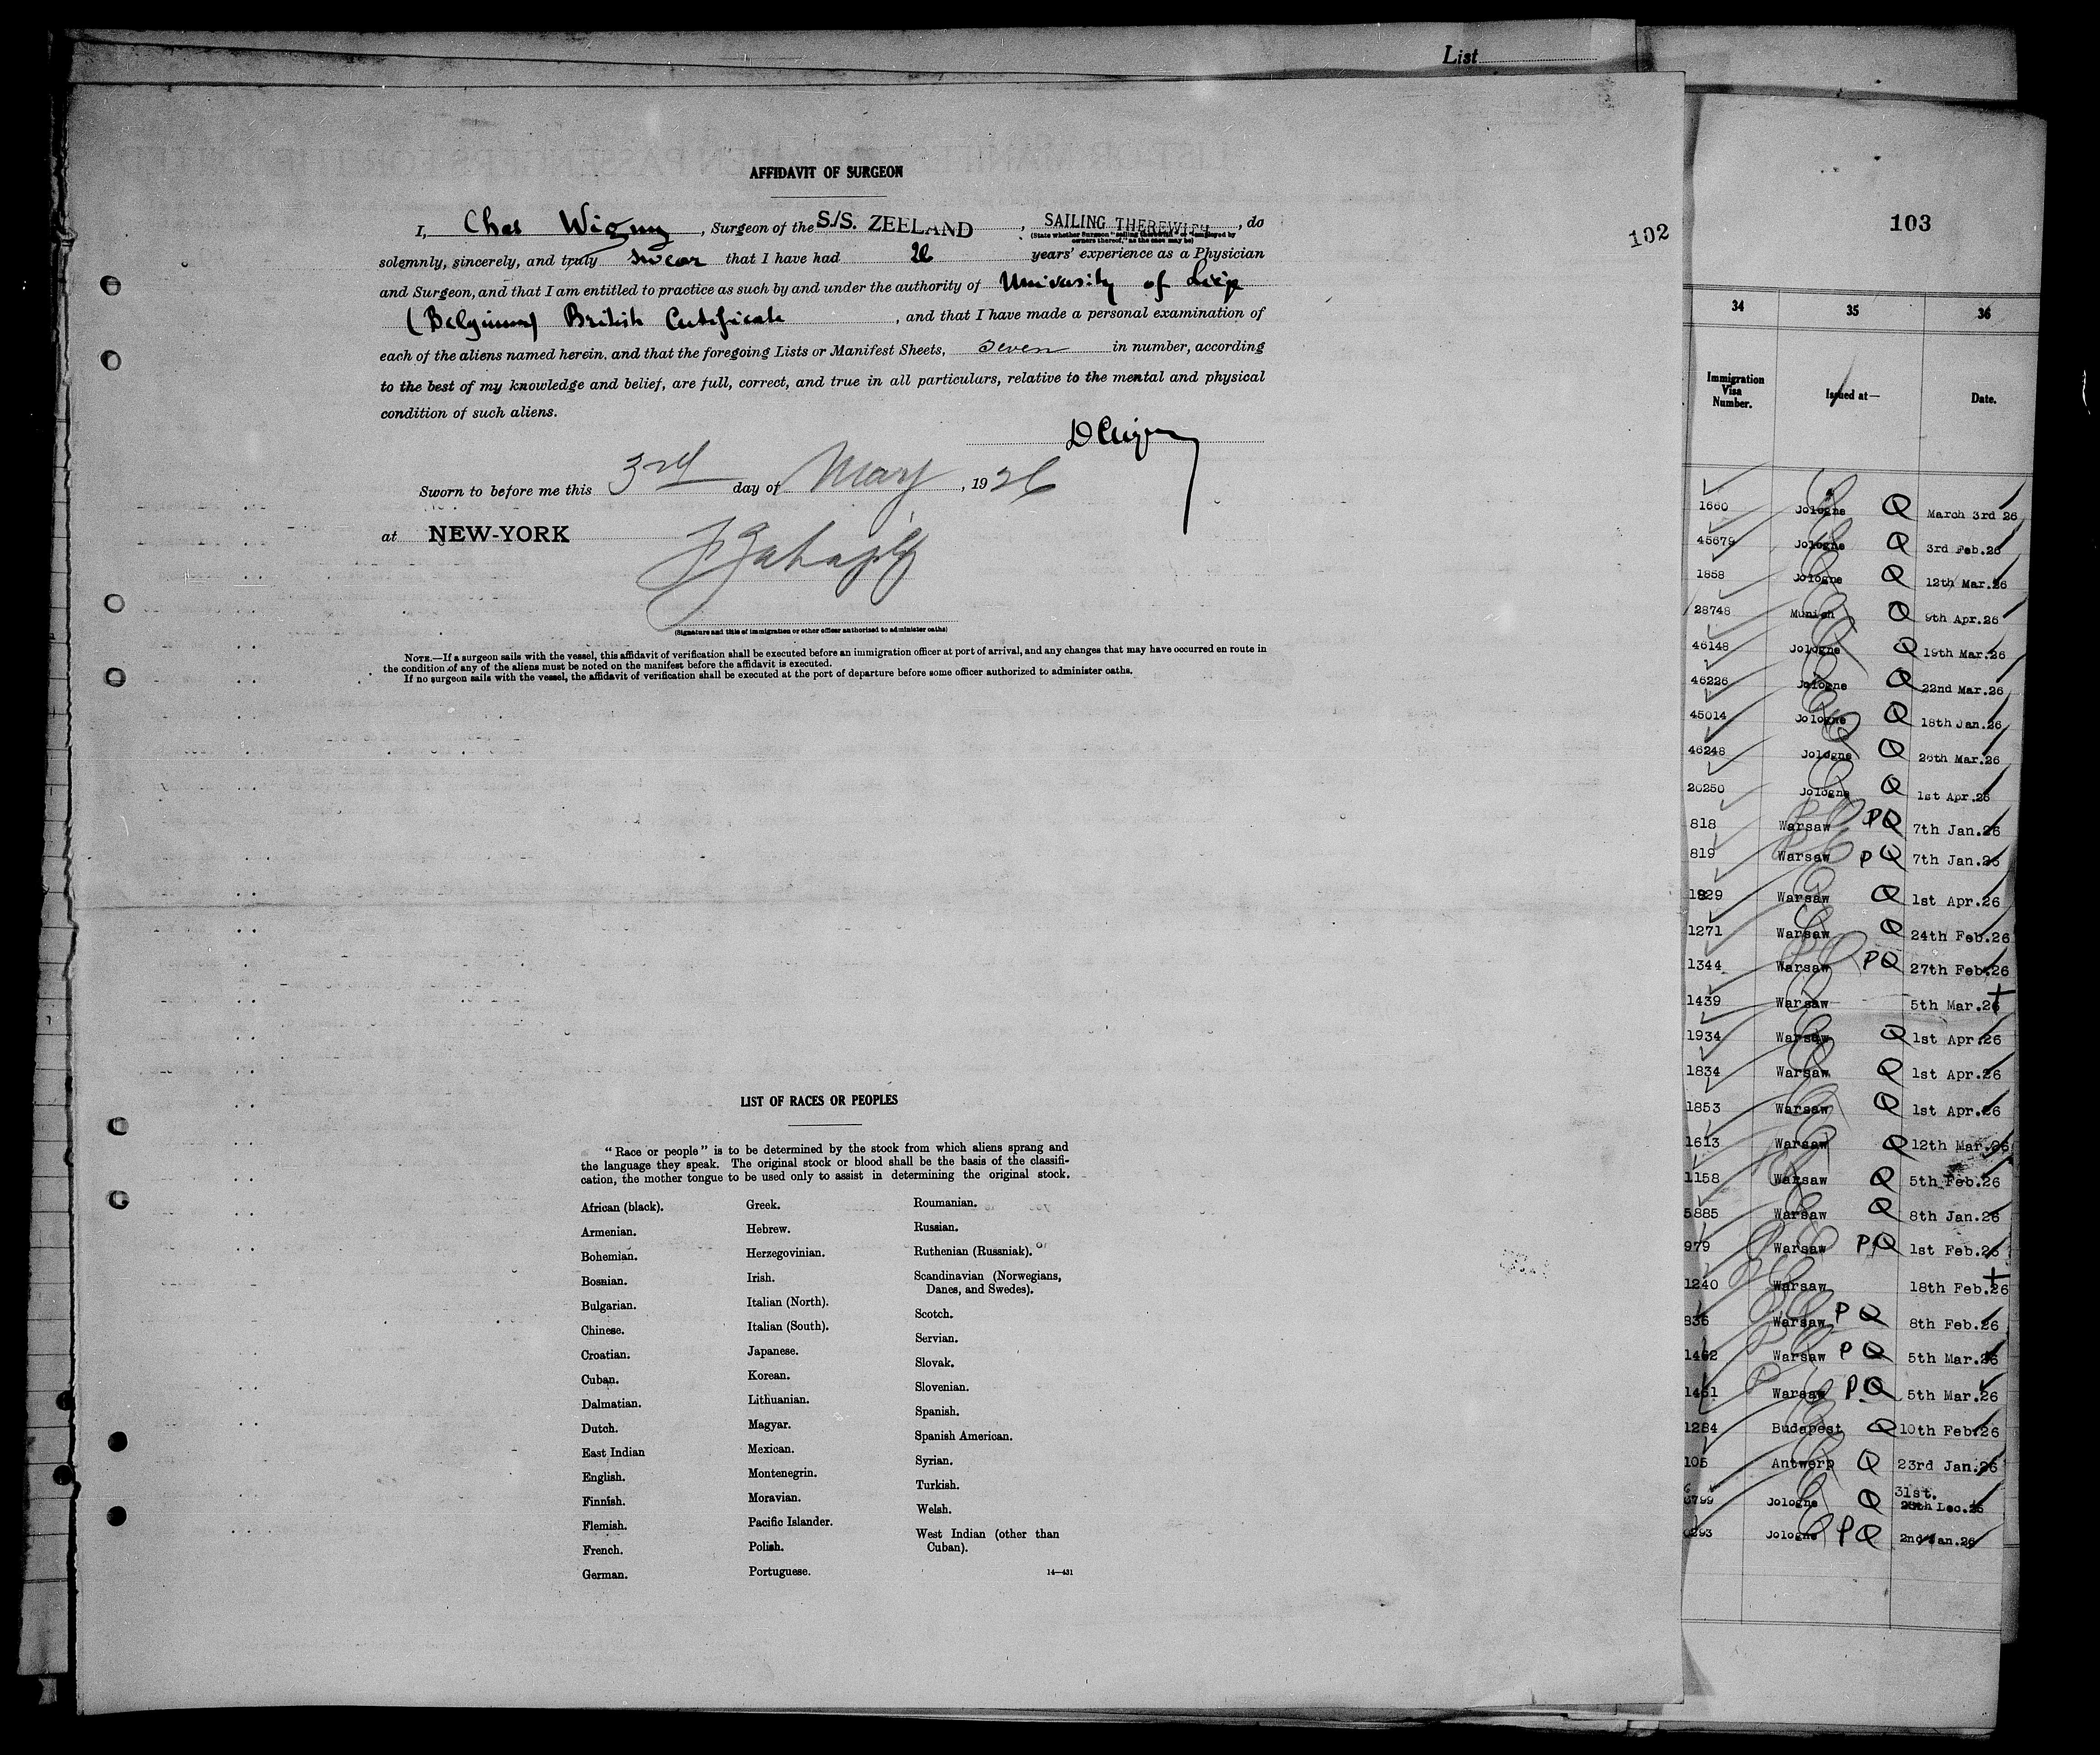 List
AFFIDAVIT OF SURGEON
I, Chas Wigny, Surgeon of the S./S. ZEELAND, SAILING THEREWITH, do
(State whether Surgeon "sailing therewith" or "employed by
owners thereof," as the case may be)
solemnly, sincerely, and truly swear that I have had years' experience as a Physician
and Surgeon, and that I am entitled to practice as such by and under the authority of University of Liège
(Belgium) British Certificate, and that I have made a personal examination of
each of the aliens named herein, and that the foregoing Lists or Manifest Sheets, seven in number, according
to the best of my knowledge and belief, are full, correct, and true in all particulars, relative to the mental and physical
condition of such aliens.
Sworn to before me this 3rd day of May, 1926
at NEW-YORK
(Signature and title of immigration or other officer authorized to administer oaths)
NOTE.—If a surgeon sails with the vessel, this affidavit of verification shall be executed before an immigration officer at port of arrival, and any changes that may have occurred en route in
the condition of any of the aliens must be noted on the manifest before the affidavit is executed.
If no surgeon sails with the vessel, the affidavit of verification shall be executed at the port of departure before some officer authorized to administer oaths.
LIST OF RACES OR PEOPLES
"Race or people" is to be determined by the stock from which aliens sprang and
the language they speak. The original stock or blood shall be the basis of the classifi-
cation, the mother tongue to be used only to assist in determining the original stock.
African (black).
Armenian.
Bohemian.
Bosnian.
Bulgarian.
Chinese.
Croatian.
Cuban.
Dalmatian.
Dutch.
East Indian
English.
Finnish.
Flemish.
French.
German.
Greek.
Hebrew.
Herzegovinian.
Irish.
Italian (North).
Italian (South).
Japanese.
Korean.
Lithuanian.
Magyar.
Mexican.
Montenegrin.
Moravian.
Pacific Islander.
Polish.
Portuguese.
Roumanian.
Russian.
Ruthenian (Russniak).
Scandinavian (Norwegians,
Danes, and Swedes).
Scotch.
Servian.
Slovak.
Slovenian.
Spanish.
Spanish American.
Syrian.
Turkish.
Welsh.
West Indian (other than
Cuban).
14—431
102
103
34 35 36
Immigration
Visa
Number.
Issued at—
Date.
1660 Jologne Q March 3rd 26
45679 Jologne Q 3rd Feb.26
1858 Jologne Q 12th Mar.26
28748 Munich Q 9th Apr.26
46148 Jologne Q 19th Mar.26
46226 Jologne Q 22nd Mar.26
45014 Jologne Q 18th Jan.26
46248 Jologne Q 26th Mar.26
20250 Jologne Q 1st Apr.26
818 Warsaw PQ 7th Jan.26
819 Warsaw PQ 7th Jan.26
1829 Warsaw Q 1st Apr.26
1271 Warsaw Q 24th Feb.26
1344 Warsaw PQ 27th Feb.26
1439 Warsaw 5th Mar.26
1934 Warsaw Q 1st Apr.26
1834 Warsaw Q 1st Apr.26
1853 Warsaw Q 1st Apr.26
1613 Warsaw Q 12th Mar.26
1158 Warsaw Q 5th Feb.26
5885 Warsaw Q 8th Jan.26
979 Warsaw PQ 1st Feb.26
1240 Warsaw 18th Feb.26
836 Warsaw PQ 8th Feb.26
1462 Warsaw PQ 5th Mar.26
1461 Warsaw PQ 5th Mar.26
1284 Budapest Q 10th Feb.26
105 Antwerp Q 23rd Jan.26
31st.
6799 Jologne Q Dec.25
0293 Jologne PQ 2nd Jan.26